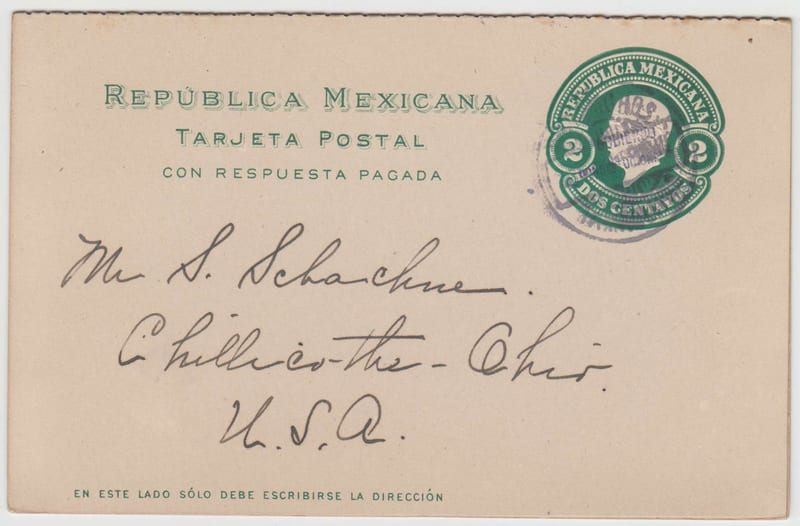 REPÚBLICA MEXICANA
TARJETA POSTAL
CON RESPUESTA PAGADA
REPUBLICA MEXICANA
2 2
DOS CENTAVOS
GOBIERNO
Mr S. Schachne.
Chillicothe - Ohio.
U. S. A.
EN ESTE LADO SÓLO DEBE ESCRIBIRSE LA DIRECCIÓN